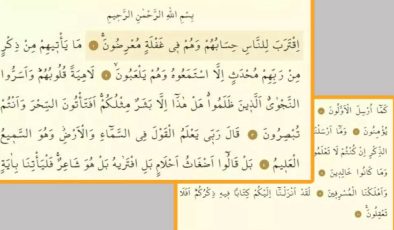 بِسْمِ اللّٰهِ الرَّحْمٰنِ الرَّحِيمِ
اِقْتَرَبَ لِلنَّاسِ حِسَابُهُمْ وَهُمْ فِى غَفْلَةٍ مُعْرِضُونَ مَا يَأْتِيهِمْ مِنْ ذِكْرٍ
مِنْ رَبِّهِمْ مُحْدَثٍ اِلَّا اسْتَمَعُوهُ وَهُمْ يَلْعَبُونَ لَاهِيَةً قُلُوبُهُمْ وَاَسَرُّوا
النَّجْوَىۗ اَلَّذِينَ ظَلَمُوا هَلْ هٰذَٓا اِلَّا بَشَرٌ مِثْلُكُمْ اَفَتَأْتُونَ السِّحْرَ وَاَنْتُمْ
تُبْصِرُونَ قَالَ رَبِّى يَعْلَمُ الْقَوْلَ فِى السَّمَٓاءِ وَالْاَرْضِ وَهُوَ السَّمِيعُ
الْعَلِيمُ بَلْ قَالُٓوا اَضْغَاثُ اَحْلَامٍ بَلِ افْتَرٰيهُ بَلْ هُوَ شَاعِرٌ فَلْيَأْتِنَا بِاٰيَةٍ
كَمَٓا اُرْسِلَ الْاَوَّلُونَ
يُؤْمِنُونَ وَمَٓا اَرْسَلْنَا
الذِّكْرِ اِنْ كُنْتُمْ لَا تَعْلَمُونَ
وَمَا كَانُوا خَالِدِينَ
وَاَهْلَكْنَا الْمُسْرِفِينَ لَقَدْ اَنْزَلْنَٓا اِلَيْكُمْ كِتَابًا فِيهِ ذِكْرُكُمْ اَفَلَا
تَعْقِلُونَ